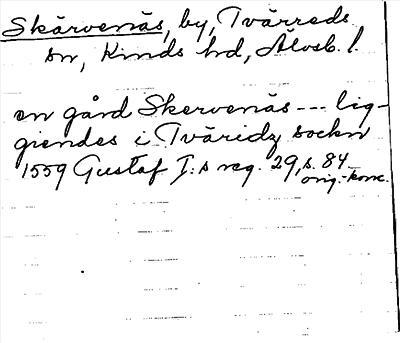 Skärvenäs, by, Tvärreds
sn, Kinds hd, Älvsb. l.
en gård Skervenäs --- lig-
giendes i Tväridz sockn
1559 Gustaf I:s reg. 29, s. 84
orig.-konc.